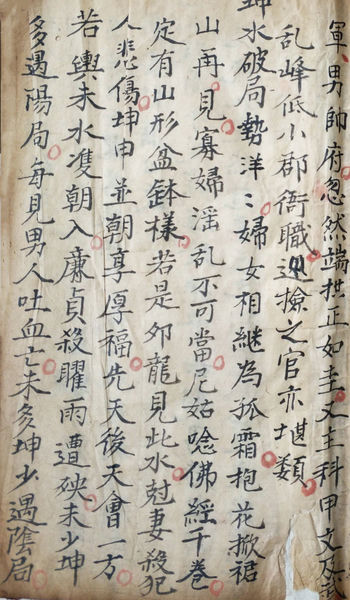 軍男帥府忽然端拱正如圭文主科甲文及武
乱峰低小郡衙職巡檢之官亦堪類
坤水破局勢洋〻婦女相継為孤霜抱花掀裙
山再見寡婦滛乱不可當尼姑唸佛經千卷
定有山形盆鉢樣若是夘龍見此水尅妻殺犯
人悲傷坤申並朝享厚福先天後天會一方
若與未水䨇朝入廉貞殺曜雨遭殃未少坤
多遇陽局每見男人吐血亡未多坤少遇陰局